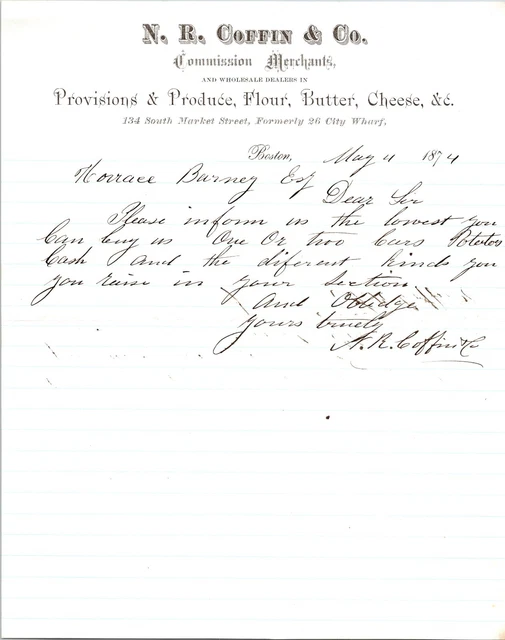 N. R. COFFIN & CO.
Commission Merchants,
AND WHOLESALE DEALERS IN
Provisions & Produce, Flour, Butter, Cheese, &c.
134 South Market Street, Formerly 26 City Wharf,
Boston, May 11 1874
Horrace Barney Esq
Dear Sir
Please inform us the lowest you
Can buy us One Or two Cars Potatos
Cash and the diferent kinds you
you raise in your Section
And Oblidge
yours truely
N. R. Coffin & Co